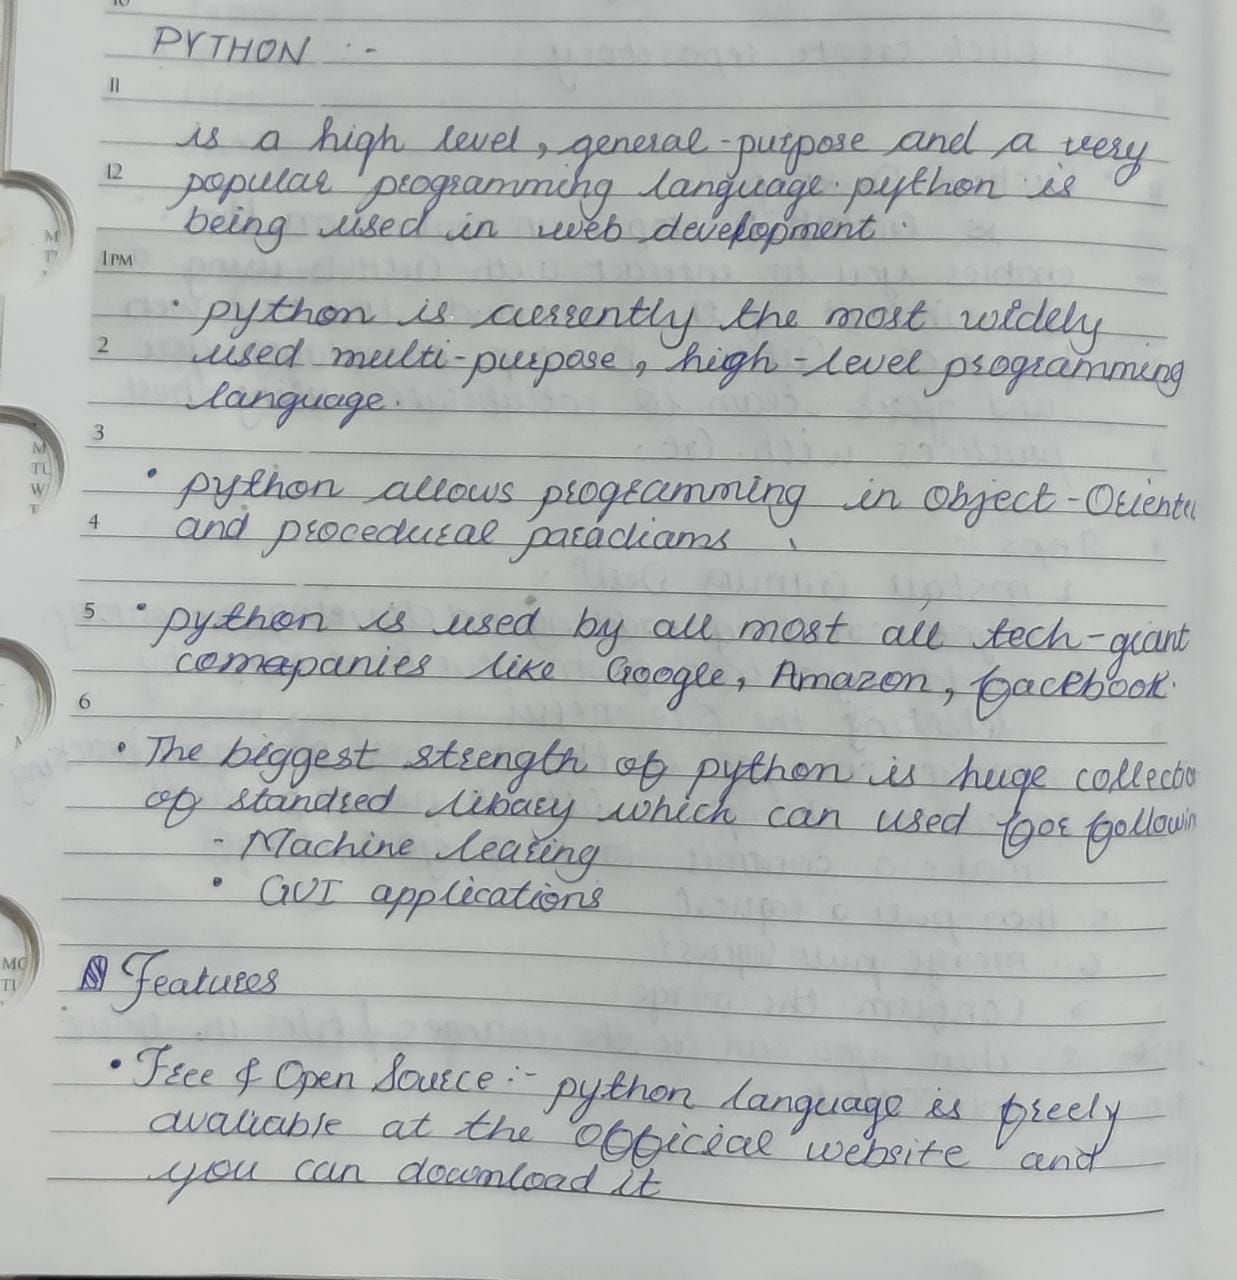 10
PYTHON :-
11
is a high level, general-purpose and a very
12 popular programming language. python is
being used in web development.
1PM
• python is currently the most widely
2 used multi-purpose, high-level programming
language.
3
• python allows programming in Object-Oriente
4 and procedural paradiams
5 • python is used by all most all tech-giant
comapanies like Google, Amazon, facebook.
6
• The biggest strength of python is huge collectio
of standred libary which can used for followin
- Machine learing
• GUI applications
Features
• Free & Open Source :- python language is freely
avaliable at the official website and
you can download it
M
T
M
TU
W
T
MO
TU